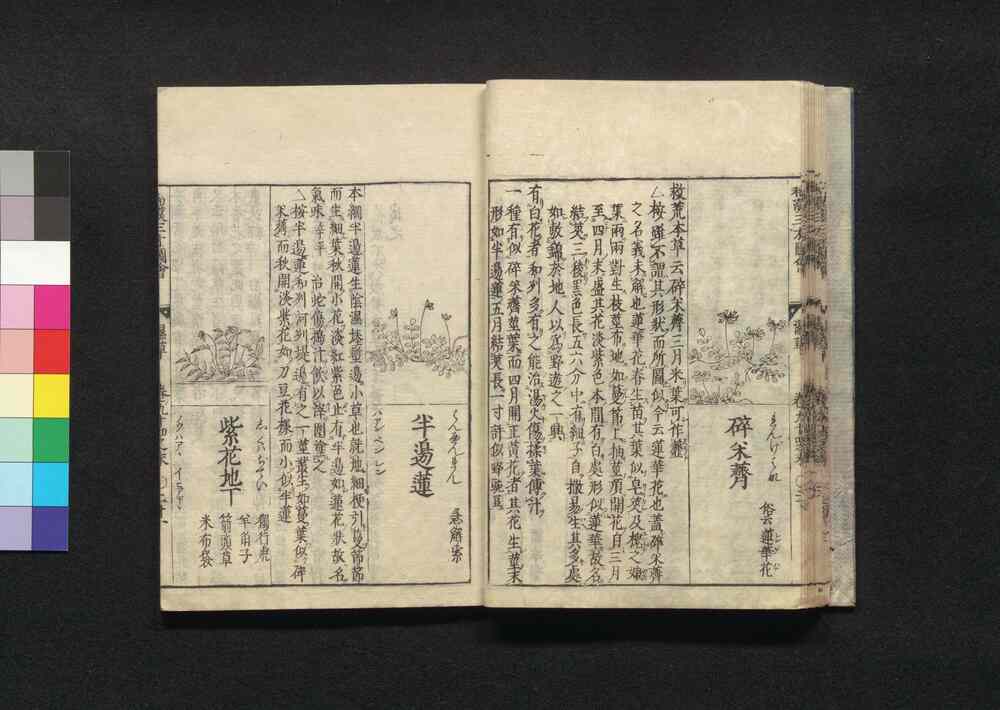 碎米薺
げんげばな
俗云蓮華花
救荒本草云碎米薺三月采葉可作虀
△按雖不謂其形狀而所圖似今云蓮華花也蓋碎米薺
之名義未解也蓮華花春生苗其葉似皂莢及槐之嫩
葉兩兩對生枝莖布地如蔓莖上抽莖頂開花自三月
至四月末盛其花淡紫色本間有白處形似蓮華故名
結莢三稜黑色長五六分中有細子自撒易生其多處
如敷錦於地人以爲野遊之一興
有白花者和州多有之能治湯火傷揉葉傳汁
一種有似碎米薺莖葉而四月開正黃花者其花生莖末
形如半邊蓮五月結莢長一寸許似野豌豆
半邊蓮
急解索
ハアン ペン レン
本綱半邊蓮生陰濕塍塹邊小草也就地細梗引蔓節節
而生細葉秋開小花淡紅紫色止有半邊如蓮花狀故名
氣味辛平 治蛇傷搗汁飲以滓圍塗之
△按半邊蓮和州河州堤邊有之一莖叢生如蔓葉似碎
米薺而秋開淡紫花如刀豆花樣而小似半蓮
紫花地丁
獨行虎
羊角子
箭頭草
米布袋